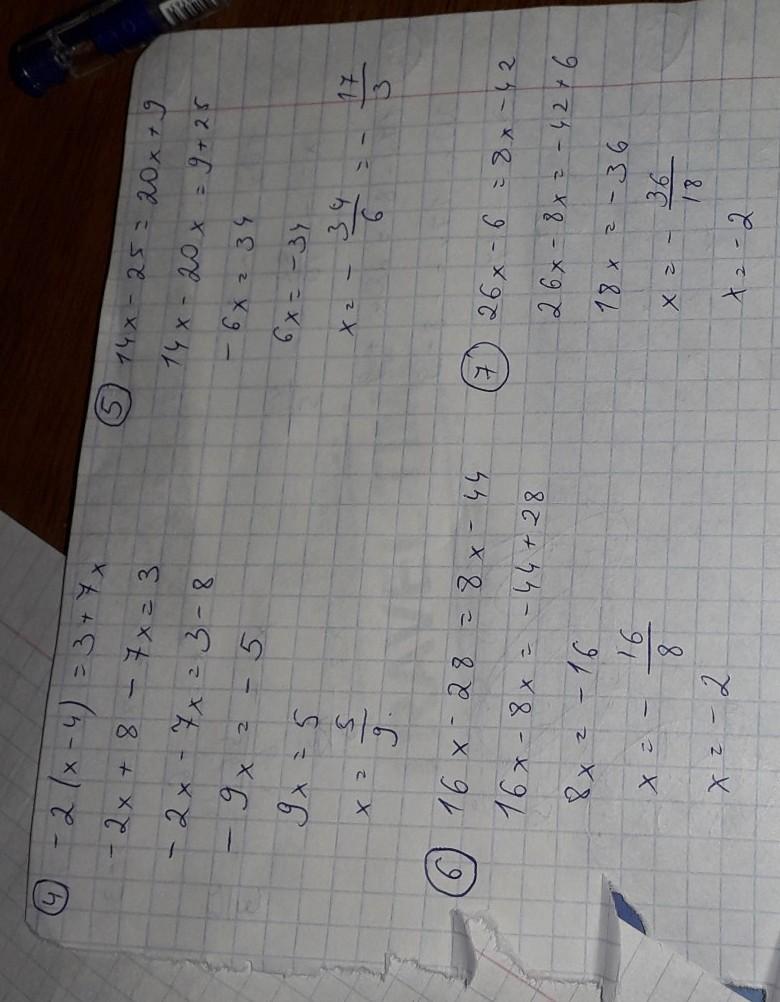 4 -2(x-4) = 3+7x
-2x+8-7x=3
-2x-7x=3-8
-9x = -5
9x = 5
x = 5/9.
5 14x-25=20x+9
14x-20x=9+25
-6x=34
6x=-34
x=-34/6=-17/3
6 16x-28=8x-44
16x-8x=-44+28
8x=-16
x=-16/8
x=-2
7 26x-6=8x-42
26x-8x=-42+6
18x=-36
x=-36/18
x=-2